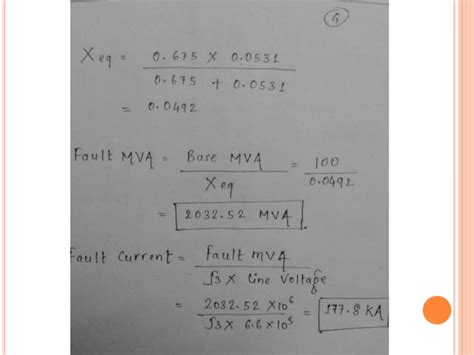 G
Xeq = 0.675 X 0.0531
0.675 + 0.0531
= 0.0492
Fault MVA = Base MVA = 100
Xeq 0.0492
= 2032.52 MVA
Fault Current = Fault MVA
√3 X Line Voltage
= 2032.52 X10⁶ = 177.8 KA
√3 X 6.6 X 10³